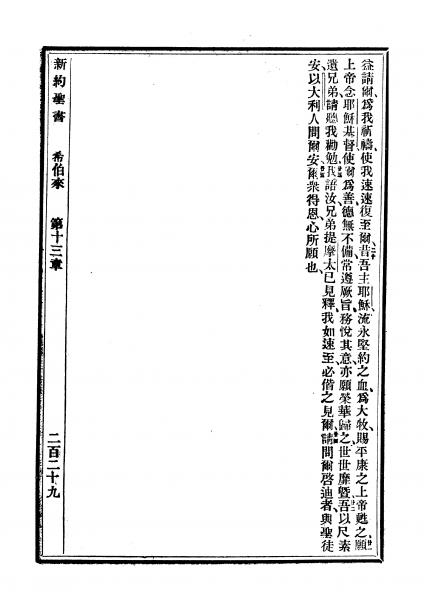 益請爾爲我祈禱、使我速速復至爾、昔吾主耶穌流永堅約之血、爲大牧、賜平康之上帝甦之、願
上帝念耶穌基督使爾爲善、德無不備、常遵厥旨、務悅其意、亦願榮華歸之、世世靡曁、吾以尺素
遺兄弟、請聽我勸勉、我語汝兄弟提摩太已見釋、我如速至、必偕之見爾、請問爾啓迪者、與聖徒
安、以大利人問爾安、爾衆得恩、心所願也、
新約聖書 希伯來 第十三章 二百二十九